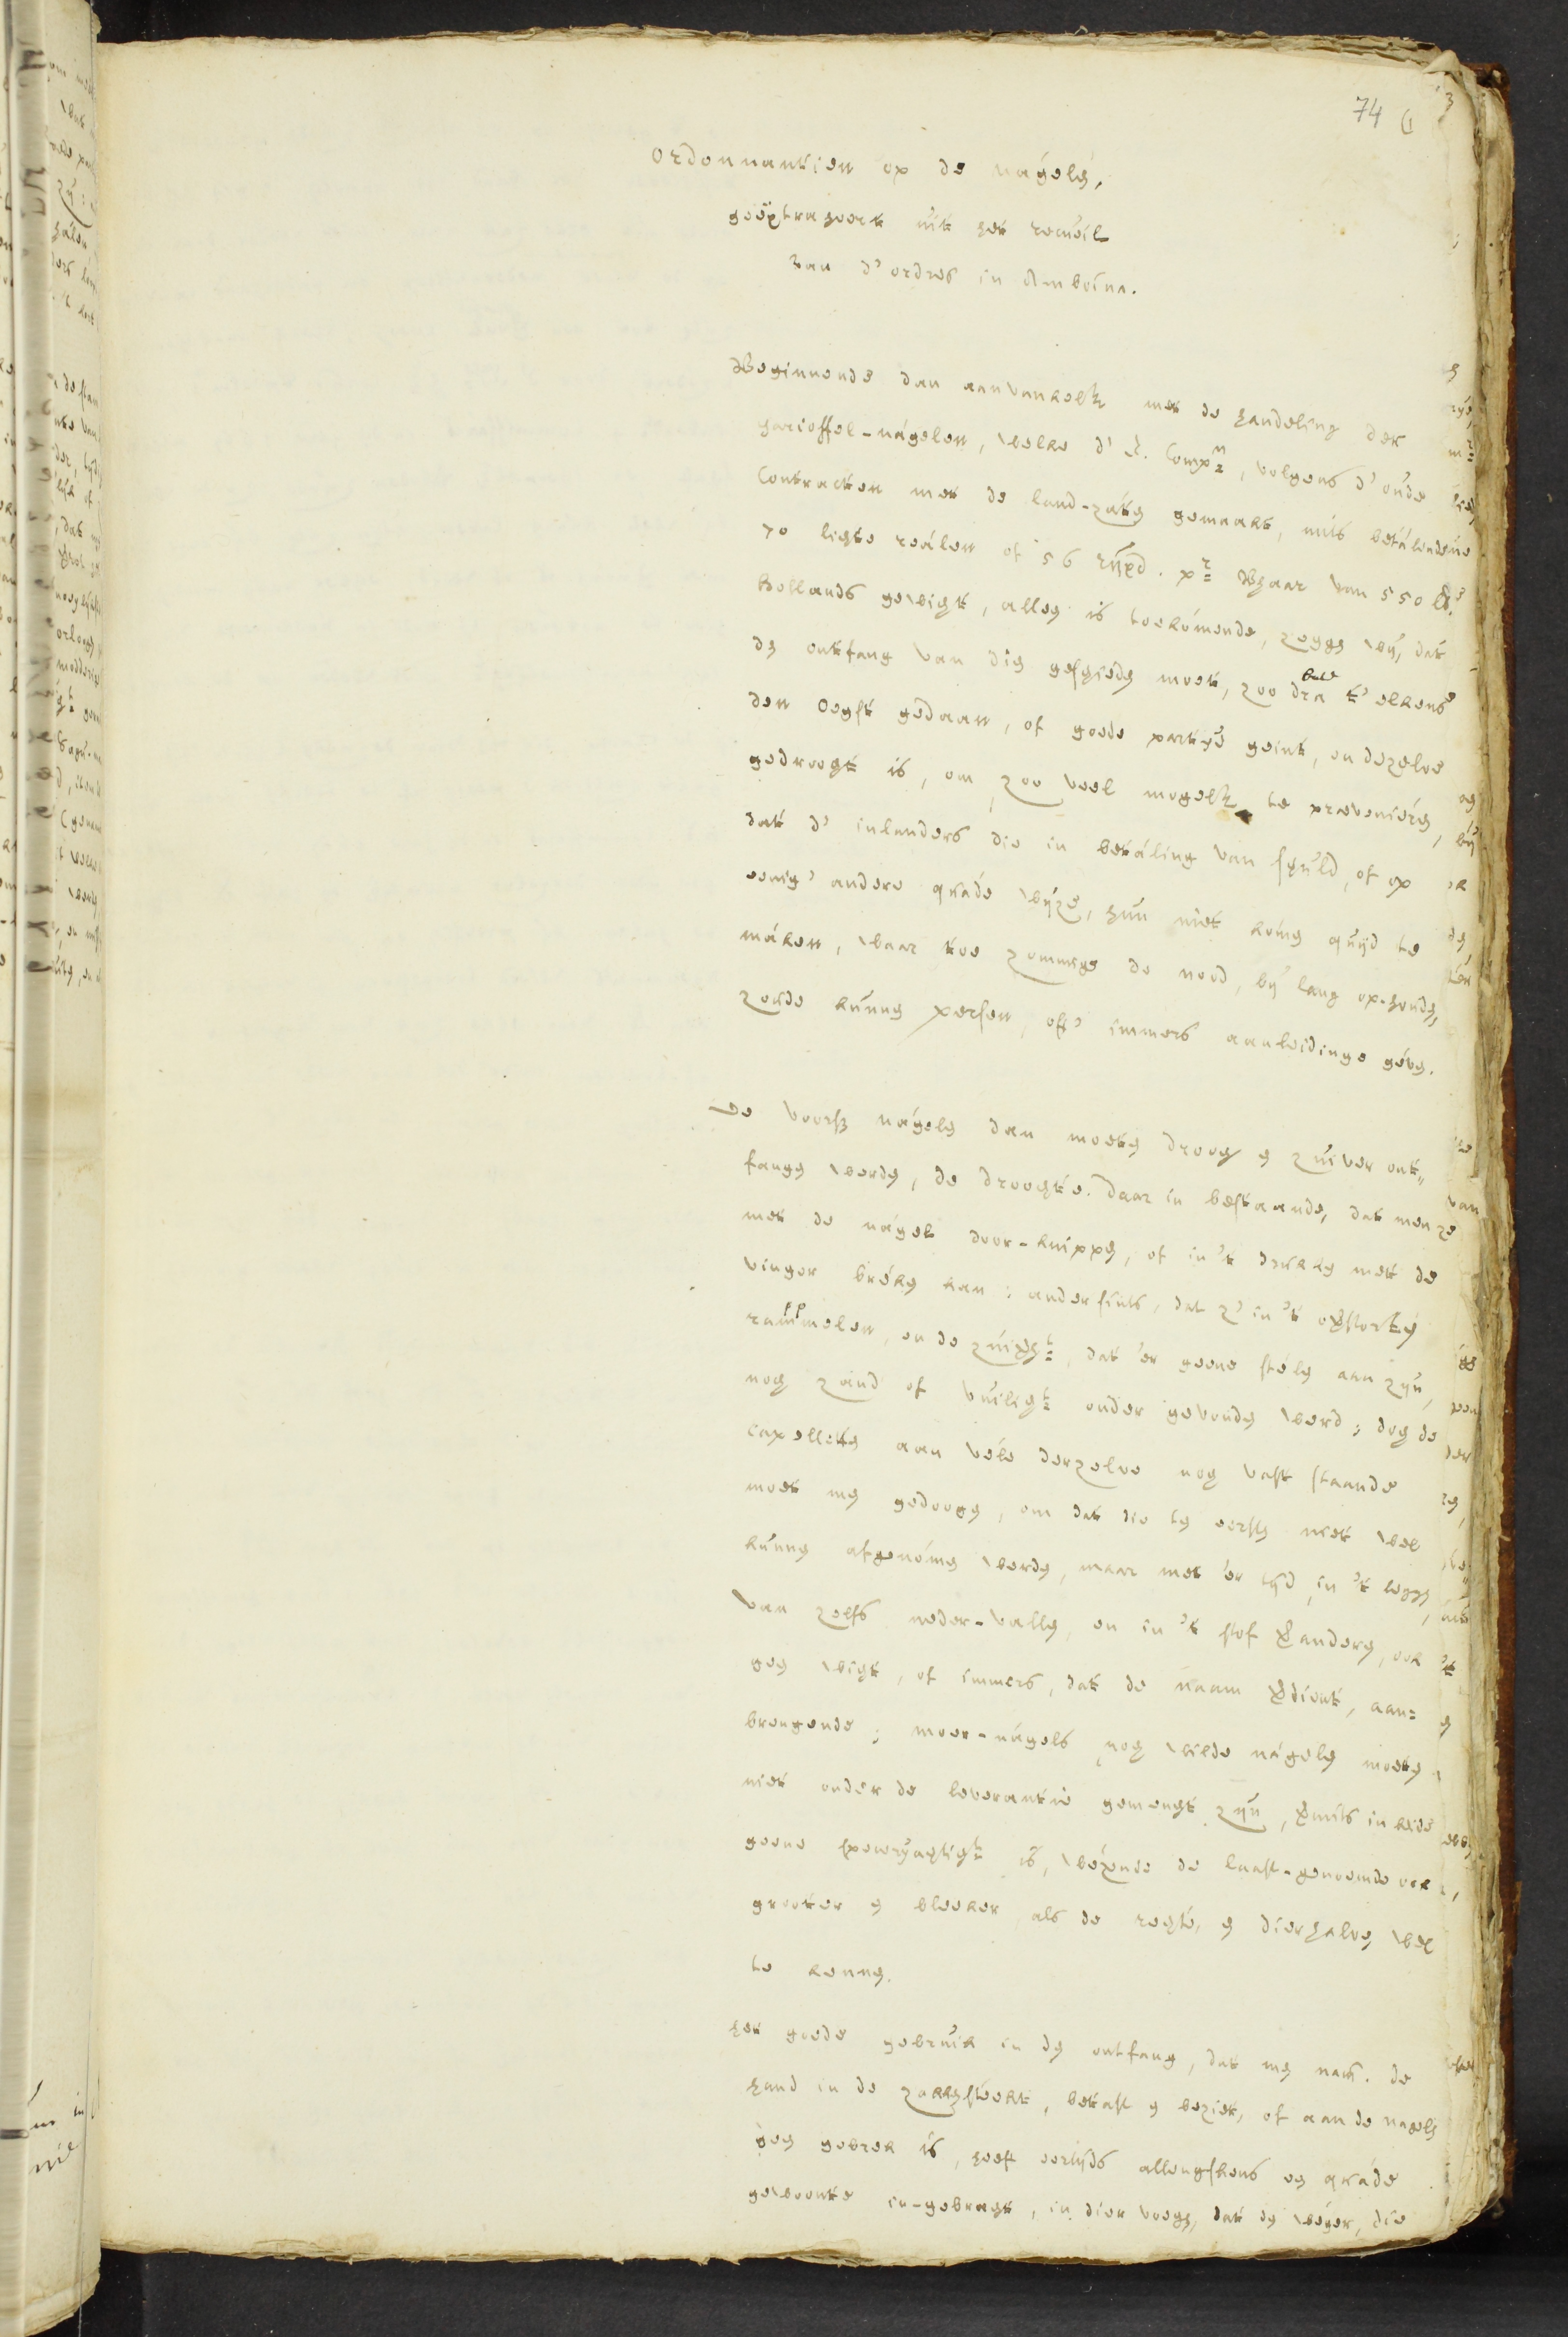 74
ordonnantien op de nágels,
geëxtraheert uit het recuéil
van d' ordres in Amboina.
Beginnende dan aanvankelk met de handeling der
garioffel-nágelen, welke d' E. Comp:e, volgens d' oúde
Contracten met de land-záten gemaakt, mits betálende
70 ligte reálen of 56 rijxd. pr Bhaar van 550 lb.
hollands gewigt, alleen is toekómende, zeggen wij, dat
den ontfang van dien geschieden moet, zoo dra t' elkens
den oegst gedaan, of goede partijé geint, en dezelve
gedroogt is, om zoo veel mogelk te praeveniéren,
dat d' inlanders die in betáling van schuld, of op
eenig' andere quáde wijze, hun niet kómen quijd te
máken, waar toe zommige de nood, bij lang op-houden,
zoude kúnnen persen, oft' immers aanleidinge géven.
De voorsz nágels dan moeten droog en zuiver ont„
fangen werden, de droogte daar in bestaande, dat men ze
met de nágel door-knippen, of in 't drukken met de
vinger bréken kan; andersints, dat z' in 't opstorten
rammelen, en de zuiverht, dat 'er geene stélen aan zijn,
nog zand of vuiligt onder gevonden werd; dog de
capelletten aan véle derzelve nog vast staande
moet men gedoogen, om dat die ten eersten niet wel
kúnnen afgenómen werden, maar met 'er tijd, in 't leggen,
van zelfs neder-vallen, en in 't stof veranderen, ook
geen wigt, of immers, dat de naam verdient, aan=
brengende; moer-nágels nog wilde nágels moeten
niet onder de leverantie gemengt zijn, vermits in beide
geene specerijagtight is, wézende de laast-genoemde ook
grooter en bleeker als de regte, en dierhalven wel
te kennen.
het goede gebruik in den ontfang, dat men nam. de
hand in de zakken steekt, betast en beziet, of aan de nagels
geen gebrek is, heeft eertijds allengskens een quáde
gewoonte in-gebragt, in dier voegen, dat den wéger, die